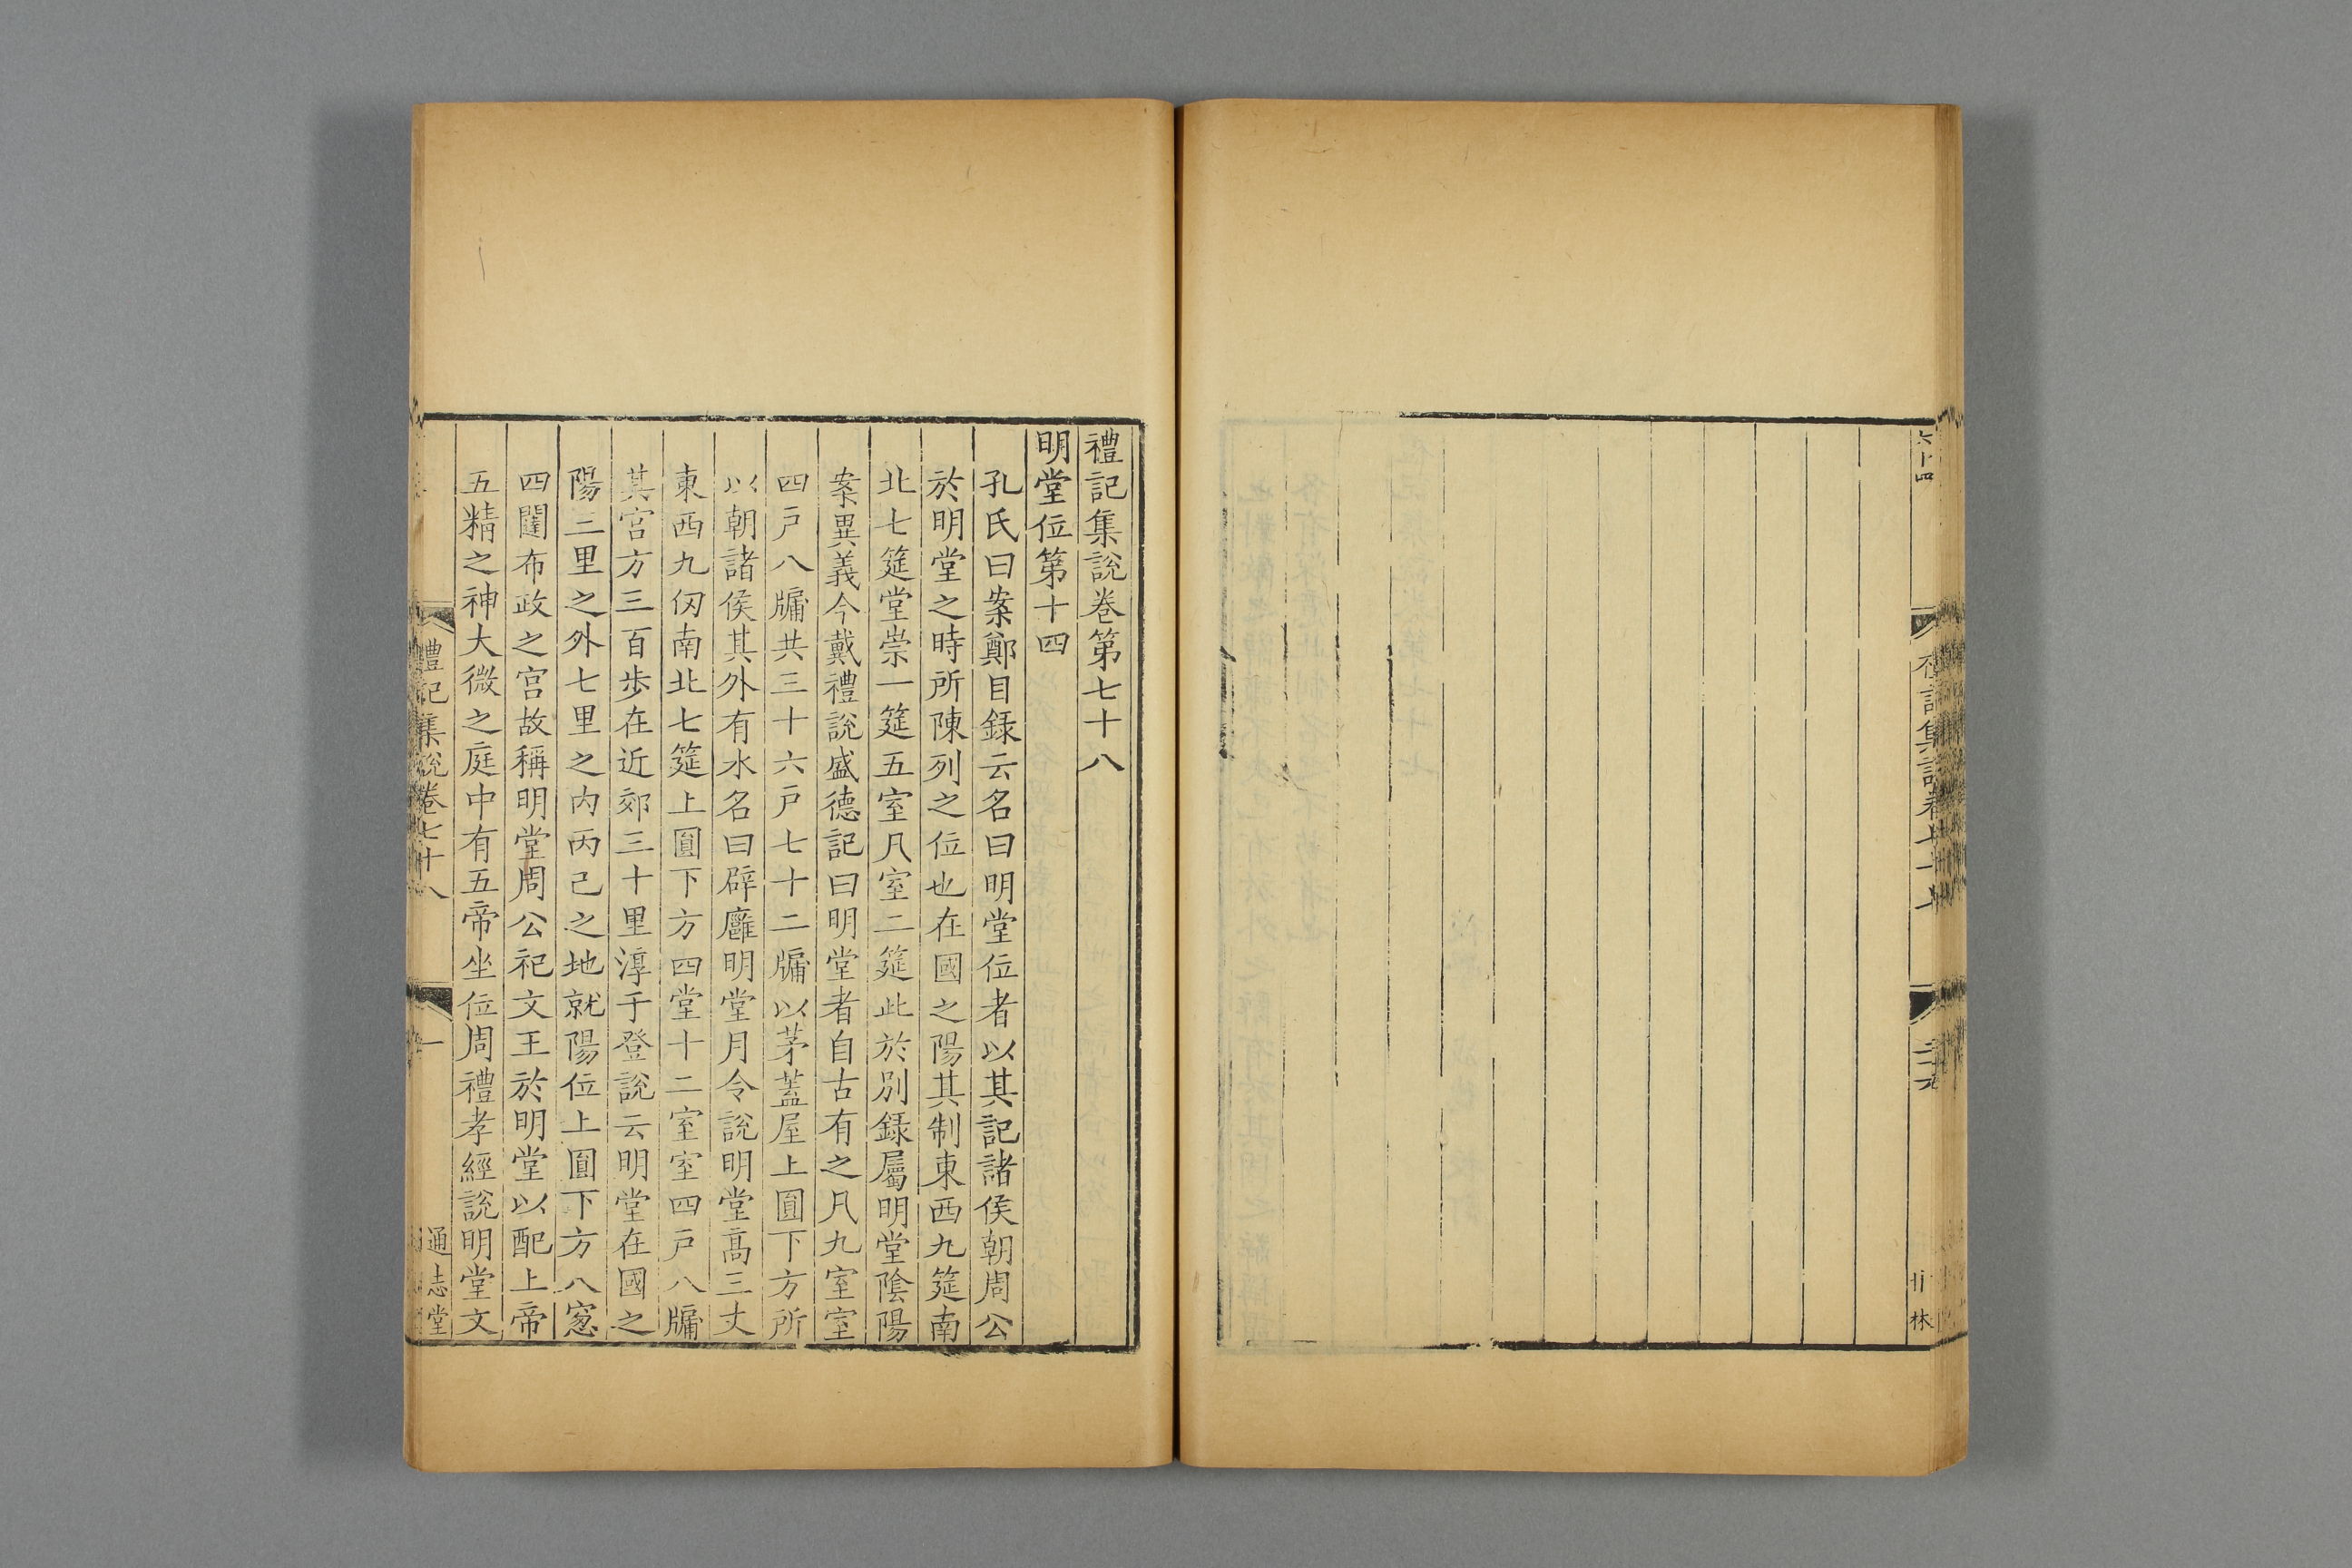 六十四
禮記集說卷七十七
禮記集說卷第七十八
明堂位第十四
孔氏曰案鄭目録云名曰明堂位者以其記諸侯朝周公
於明堂之時所陳列之位也在國之陽其制東西九筵南
北七筵堂崇一筵五室凡室二筵此於別録屬明堂陰陽
案異義今戴禮說盛德記曰明堂者自古有之凡九室室
四戸八牖共三十六戸七十二牖以茅蓋屋上圓下方所
以朝諸侯其外有水名曰辟廱明堂月令說明堂高三丈
東西九仞南北七筵上圓下方四堂十二室室四戸八牖
其宮方三百步在近郊三十里淳于登說云明堂在國之
陽三里之外七里之内丙己之地就陽位上圓下方八窻
四闥布政之宮故稱明堂周公祀文王於明堂以配上帝
五精之神大微之庭中有五帝坐位周禮孝經說明堂文
禮記集說卷七十八
一
通志堂